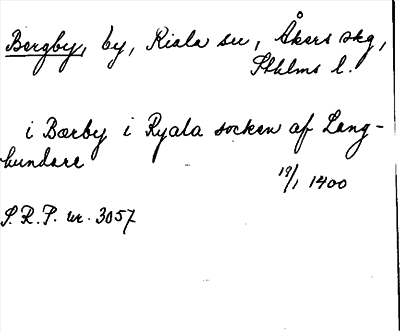 Bergby, by, Riala sn, Åkers skg,
Sthlms l.
i Bærby i Ryala socken af Lang-
hundare
19/1 1400
S.R.P. nr. 3057